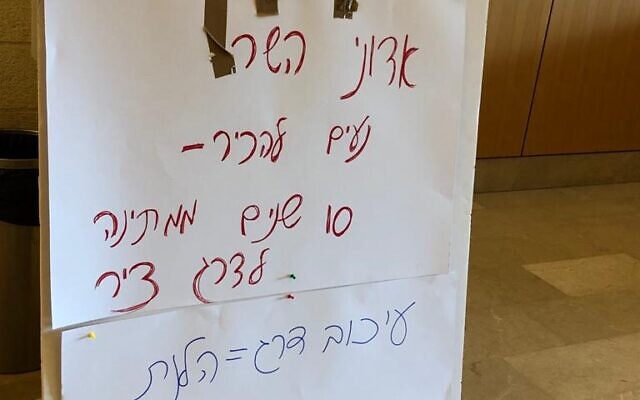 אדוני השר
נעים להכיר –
10 שנים ממתינה
לדרג ציר
עיכוב דרג = הלנת